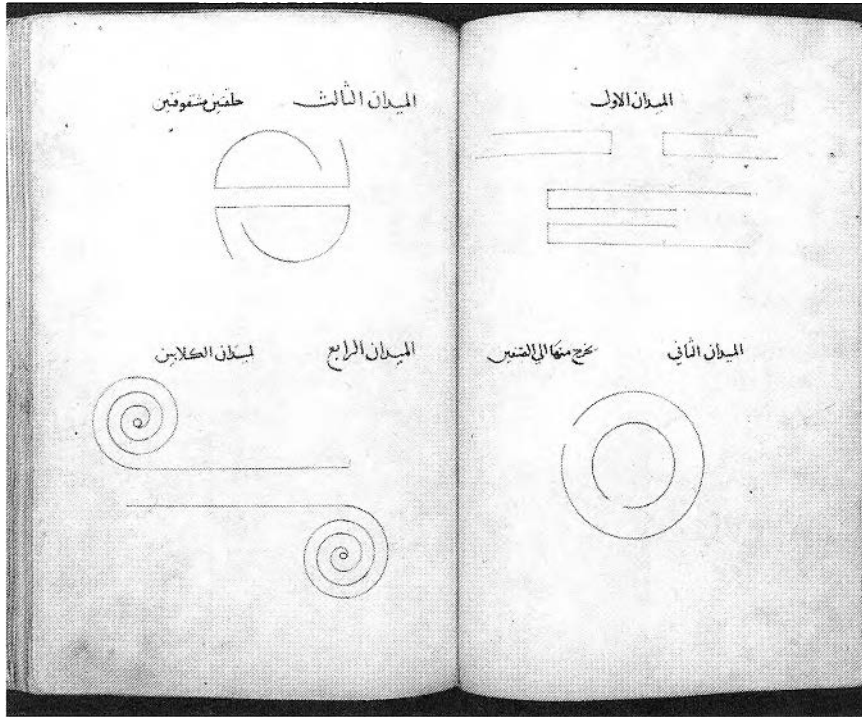 الميدان الاول
الميدان الثاني يخرج منها الي الصفين
الميدان الثالث حلقتين مشقوقتين
الميدان الرابع لميدان الكلابين